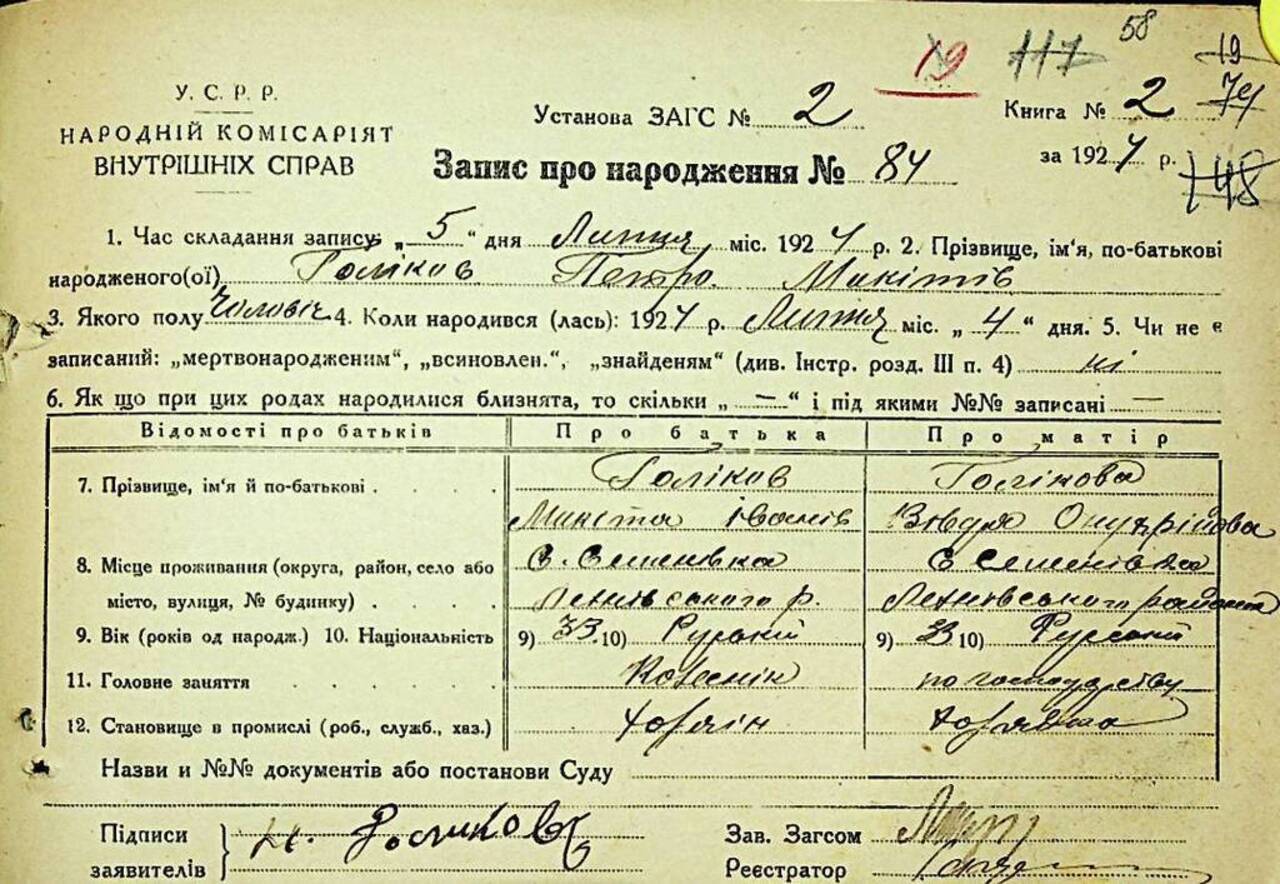 19 117 58 19
У. С. Р. Р.
НАРОДНІЙ КОМІСАРІЯТ
ВНУТРІШНІХ СПРАВ
Установа ЗАГС № 2 Книга № 2 74
Запис про народження № 84 за 1924 р. 148
1. Час складання запису: „5“ дня Липця міс. 1924 р. 2. Прізвище, ім'я, по-батькові
народженого(ої) Голіков Петро Микітів
3. Якого полу Чоловіч 4. Коли народився (лась): 1924 р. Липця міс. „4“ дня. 5. Чи не є
записаний: „мертвонародженим“, „всиновлен.“, „знайденям“ (див. Інстр. розд. III п. 4) ні
6. Як що при цих родах народилися близнята, то скільки „—“ і під якими №№ записані —
Відомості про батьків Про батька Про матір
7. Прізвище, ім'я й по-батькові Голіков Голікова
Микита Іванів Вовдя Онуфрійова
8. Місце проживання (округа, район, село або С. Семенівка С Семенівка
місто, вулиця, № будинку) р. района
9. Вік (років од народж.) 10. Національність 9) 33 10) Руський 9) 33 10) Руський
11. Головне заняття по господарству
12. Становище в промислі (роб., служб., хаз.)
Назви и №№ документів або постанови Суду
Підписи
заявителів Н. Голиков
Зав. Загсом
Реєстратор